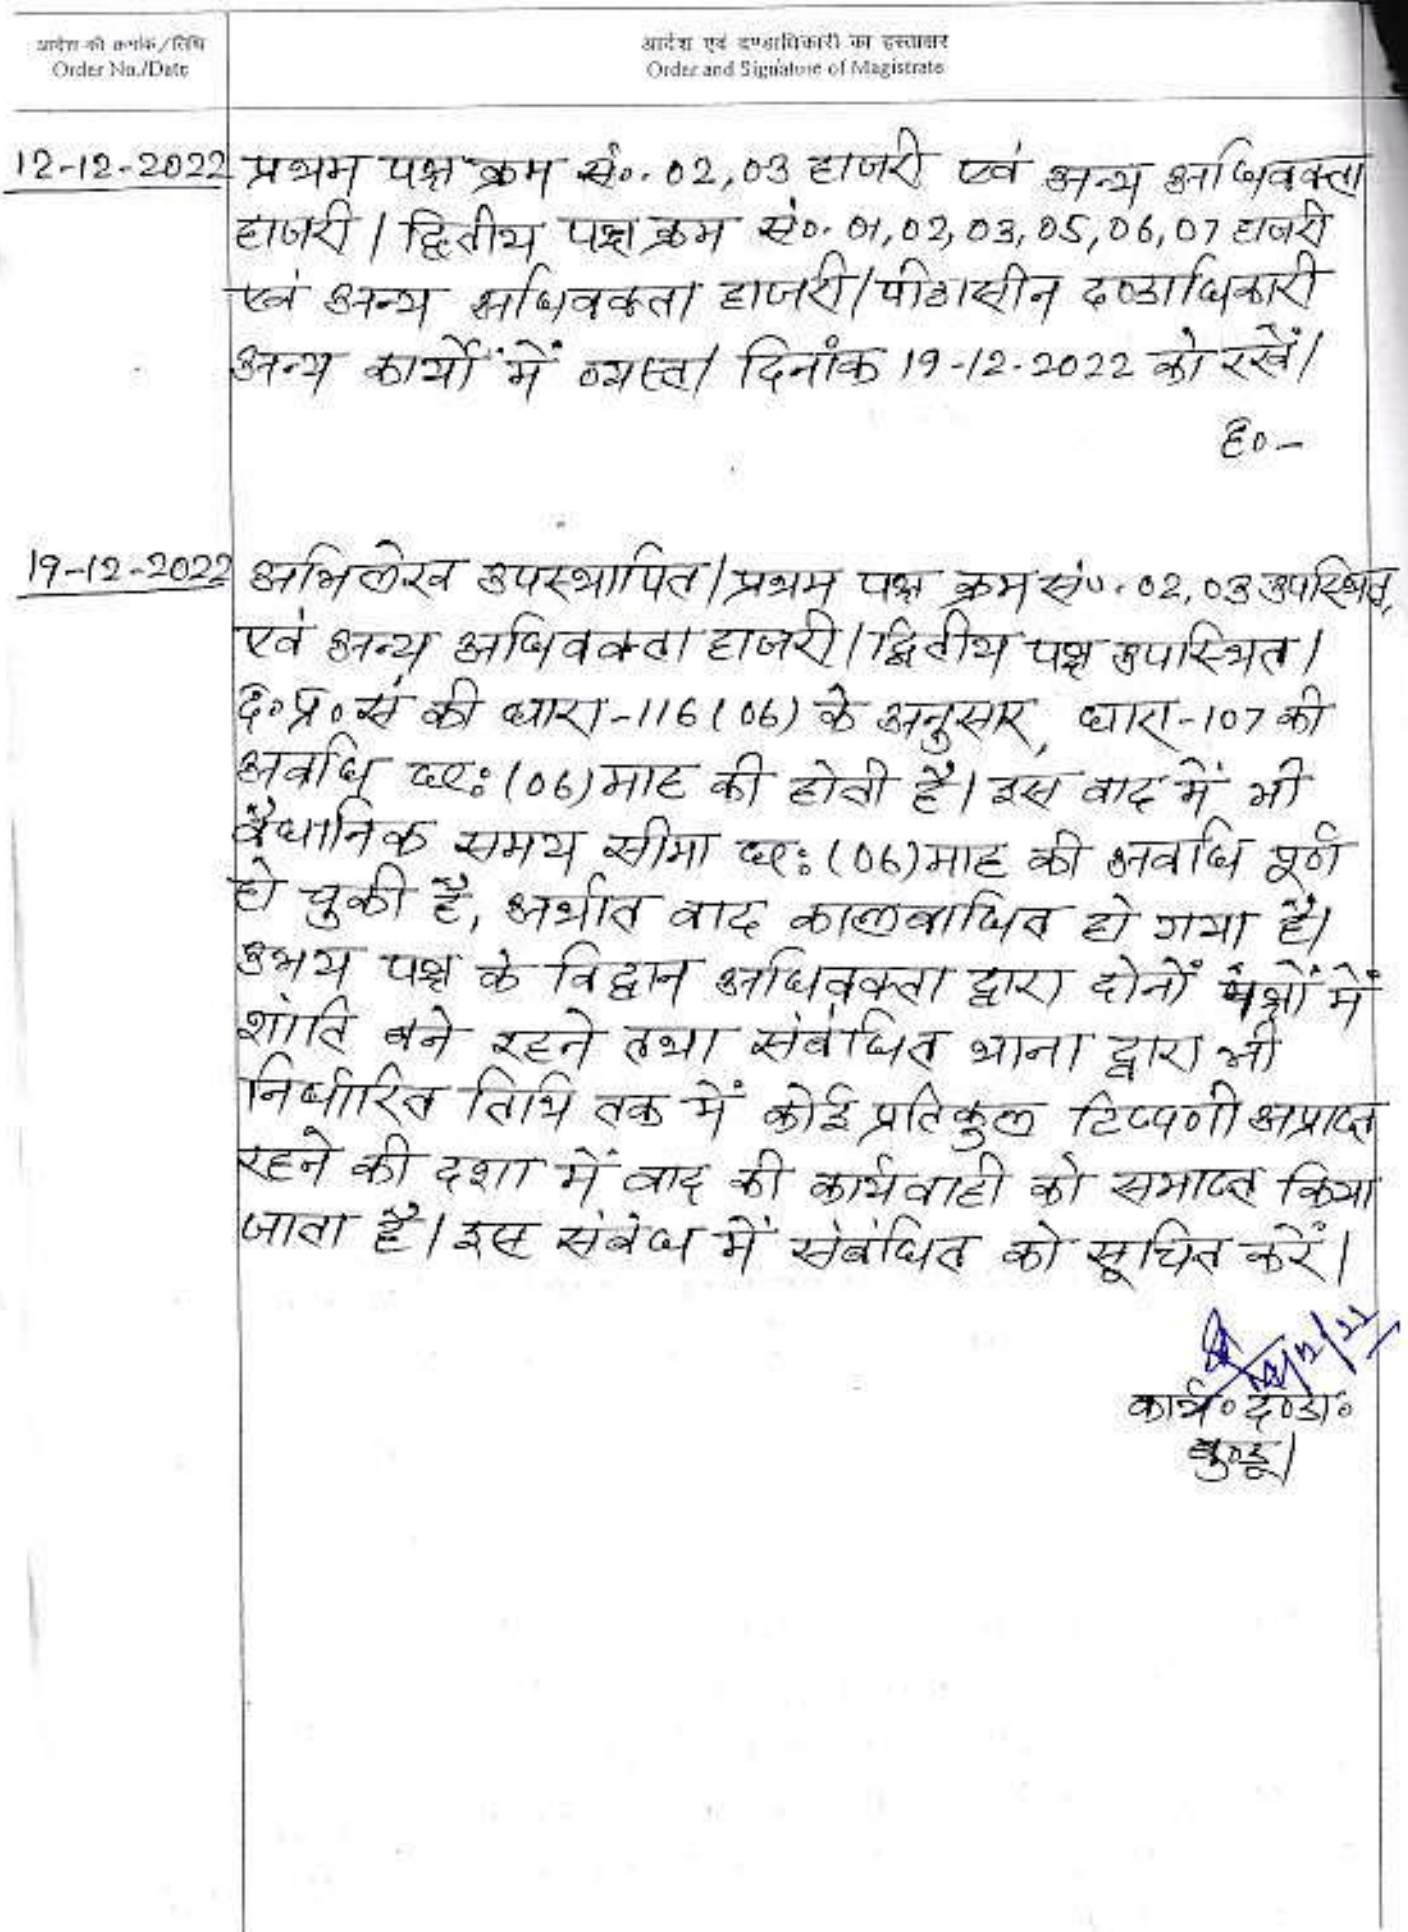 आदेश की क्रमांक/तिथि
Order No./Date
आदेश एवं दण्डाधिकारी का हस्ताक्षर
Order and Signature of Magistrate
12-12-2022 प्रथम पक्ष क्रम सं०. 02,03 हाजरी एवं अन्य अधिवक्ता
हाजरी। द्वितीय पक्ष क्रम सं०. 01,02,03,05,06,07 हाजरी
एवं अन्य अधिवक्ता हाजरी। पीठासीन दण्डाधिकारी
अन्य कार्यों में व्यस्त। दिनांक 19-12-2022 को रखें।
ह०-
19-12-2022 अभिलेख उपस्थापित। प्रथम पक्ष क्रम सं०. 02,03 उपस्थित,
एवं अन्य अधिवक्ता हाजरी। द्वितीय पक्ष उपस्थित।
द०प्र०सं की धारा-116(06) के अनुसार, धारा-107 की
अवधि छः(06)माह की होती है। इस वाद में भी
वैधानिक समय सीमा छः(06)माह की अवधि पूर्ण
हो चुकी है, अर्थात वाद कालबाधित हो गया है।
उभय पक्ष के विद्वान अधिवक्ता द्वारा दोनों पक्षों में
शांति बने रहने तथा संबंधित थाना द्वारा भी
निर्धारित तिथि तक में कोई प्रतिकुल टिप्पणी अप्राप्त
रहने की दशा में वाद की कार्यवाही को समाप्त किया
जाता है। इस संबंध में संबंधित को सूचित करें।
19/12/22
कार्य० दण्डा०
बुण्डू।